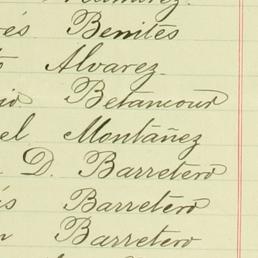 Ramirez.
és Benites
o Alvarez.
io Betancourt
el Montañez
. D. Barretero
ás Barretero
n Barretero